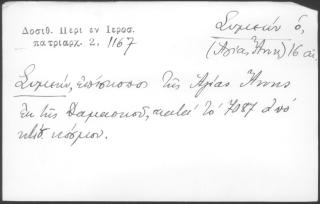 Δοσιθ. Περι εν Ιεροσ.
πατριαρχ. 2. 1167
Συμεών ὁ,
(Αγίας Άννης) 16 αἰ.
Συμεών, ἐπίσκοπος τῆς Ἁγίας Ἄννης
ἐκ τῆς Δαμασκοῦ, κατά τό 7087 ἀπό
κόσμου.